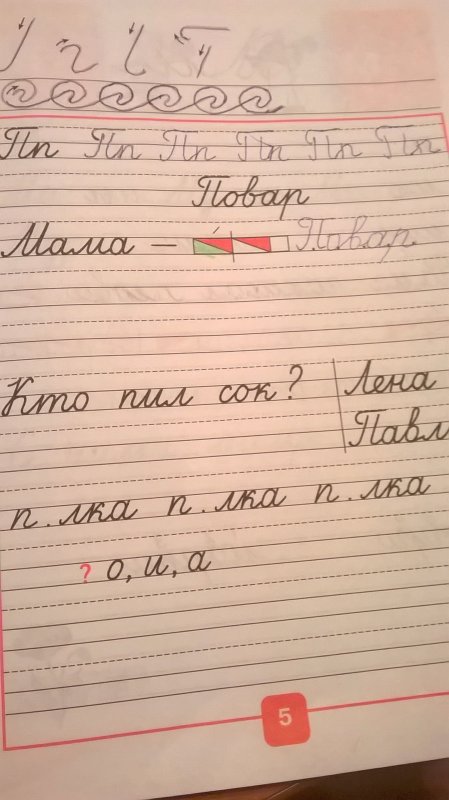 Пп Пп Пп Пп Пп Пп
Повар
Мама — Повар
Кто пил сок? Лена
Павл
п.лка п.лка п.лка
? о, и, а
5